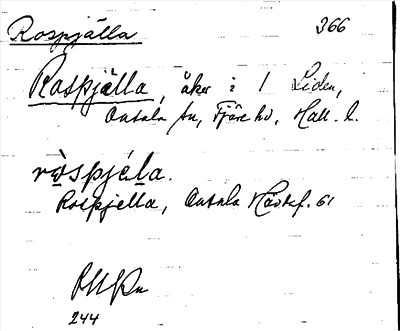 Rospjälla 366
Rospjälla, åker i 1 Liden,
Onsala sn, Fjäre hd, Hall. l.
ròspjéla.
Rospjella, Onsala Hävdef. 61
244